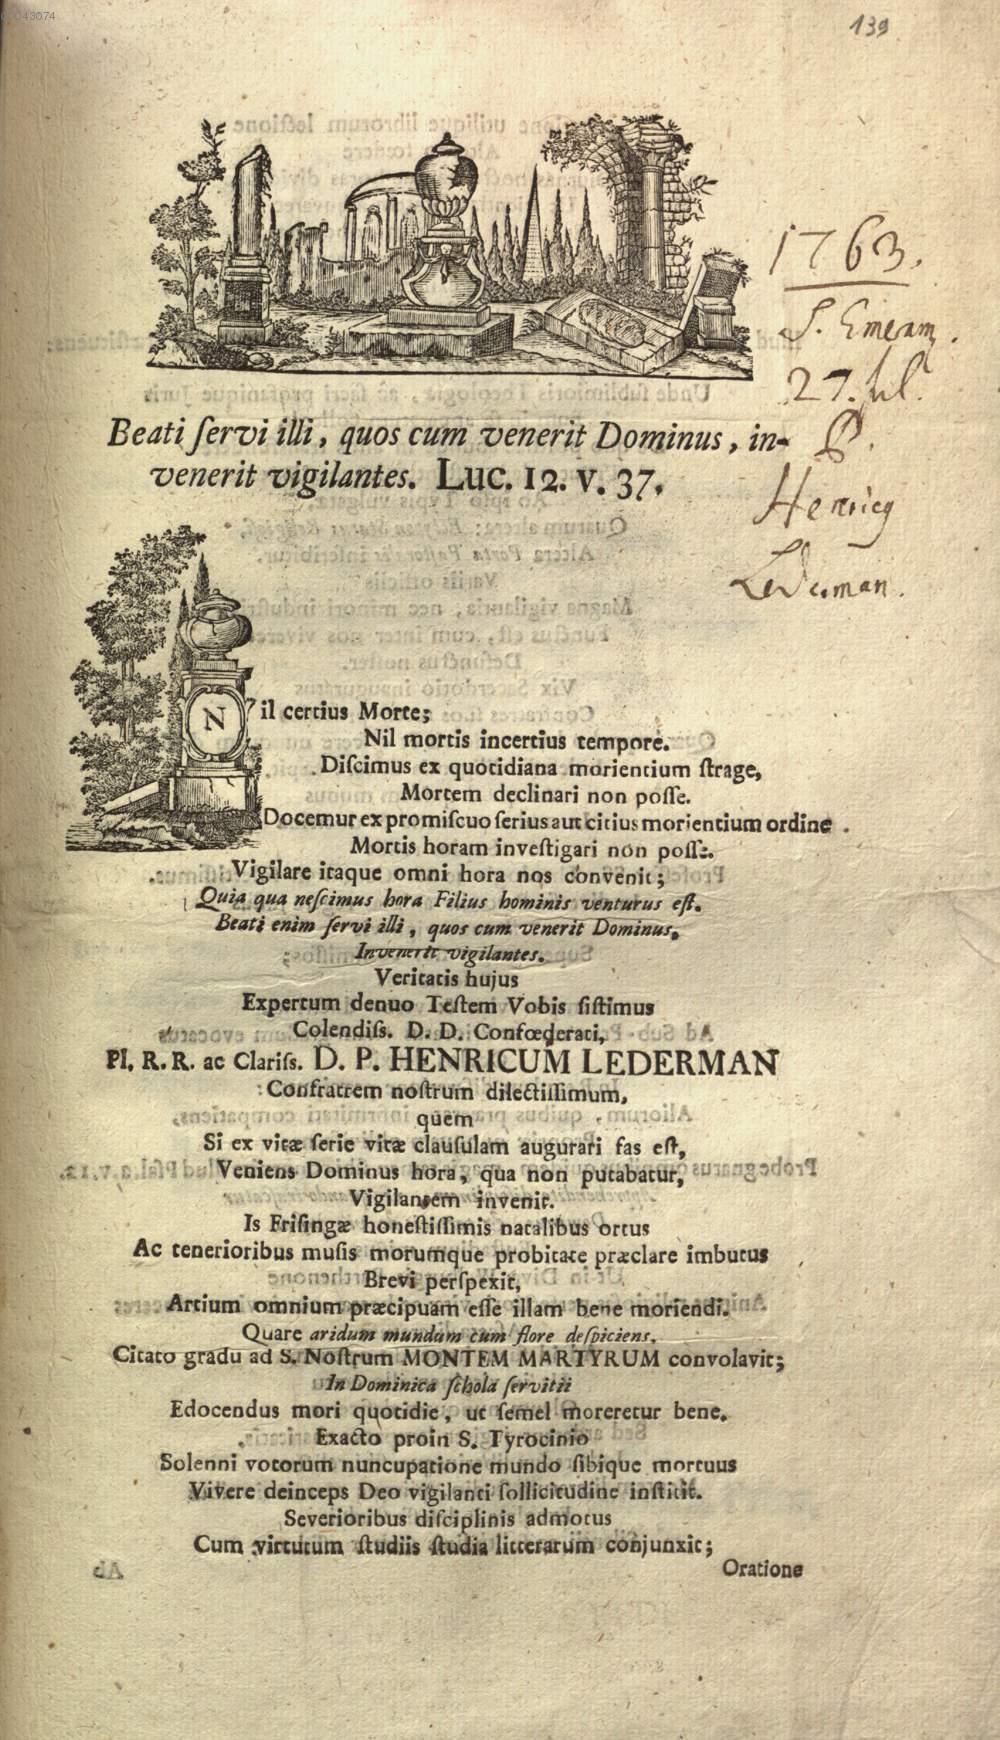 139
1763.
S. Emeram
27. Jul.
P.
Henricq
Lederman.
Beati ſervi illi, quos cum venerit Dominus, in-
venerit vigilantes. Luc. 12. v. 37.
Nil certius Morte;
Nil mortis incertius tempore.
Diſcimus ex quotidiana morientium ſtrage,
Mortem declinari non poſſe.
Docemur ex promiſcuo ſerius aut citius morientium ordine.
Mortis horam inveſtigari non poſſe.
Vigilare itaque omni hora nos convenit;
Quia qua neſcimus hora Filius hominis venturus eſt.
Beati enim ſervi illi, quos cum venerit Dominus,
Invenerit vigilantes.
Veritatis hujus
Expertum denuo Teſtem Vobis ſiſtimus
Colendiſs. D. D. Confœderati,
Pl. R. R. ac Clariſs. D. P. HENRICUM LEDERMAN
Confratrem noſtrum dilectiſſimum,
quem
Si ex vitæ ſerie vitæ clauſulam augurari fas eſt,
Veniens Dominus hora, qua non putabatur,
Vigilantem invenit.
Is Friſingæ honeſtiſſimis natalibus ortus
Ac tenerioribus muſis morumque probitate præclare imbutus
Brevi perſpexit,
Artium omnium præcipuam eſſe illam bene moriendi.
Quare aridum mundum cum flore deſpiciens,
Citato gradu ad S. Noſtrum MONTEM MARTYRUM convolavit;
In Dominica ſchola ſervitii
Edocendus mori quotidie, ut ſemel moreretur bene.
Exacto proin S. Tyrocinio
Solenni votorum nuncupatione mundo ſibique mortuus
Vivere deinceps Deo vigilanti ſollicitudine inſtitit.
Severioribus diſciplinis admotus
Cum virtutum ſtudiis ſtudia litterarum conjunxit;
Oratione